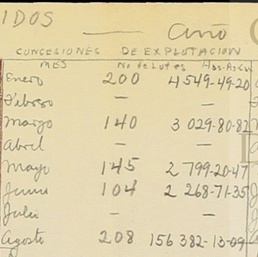 IDOS
Año
CONCESIONES DE EXPLOTACION
MES No de Lotes Has-As-Cs
Enero 200 4549-49-20
Febrero — —
Marzo 140 3 029-80-82
Abril — —
Mayo 145 2 799-20-47
Junio 104 2 268-71-35
Julio - -
Agosto 208 156 382-13-09